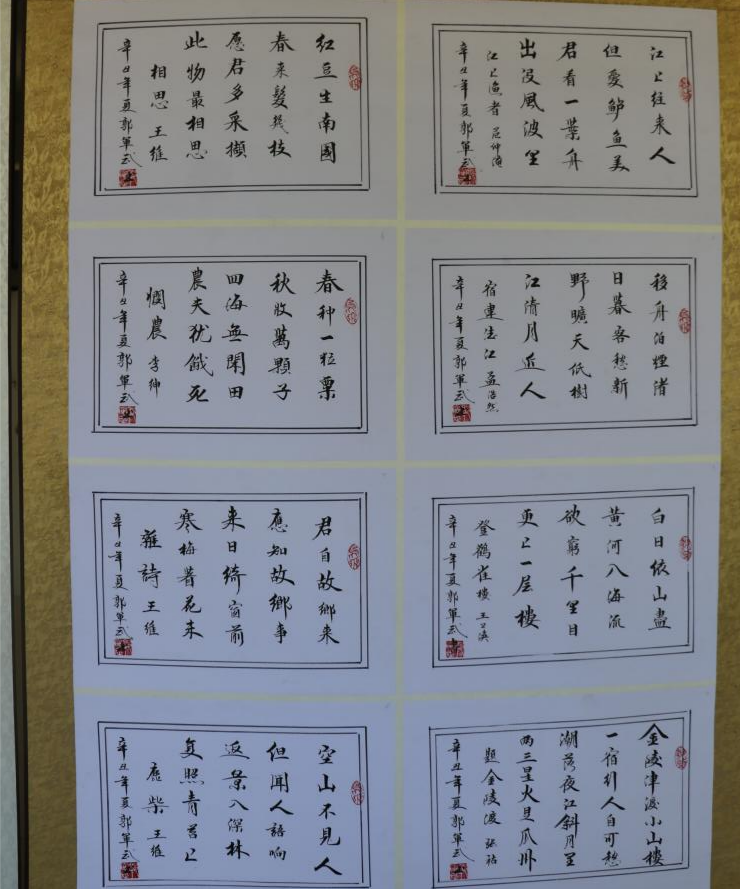 江上往来人
但愛鲈鱼美
君看一葉舟
出没風波里
江上漁者 范仲淹
辛丑年夏郭軍武
红豆生南國
春来發幾枝
愿君多采擷
此物最相思
相思 王維
辛丑年夏郭軍武
移舟泊煙渚
日暮客愁新
野曠天低樹
江清月近人
宿建德江 孟浩然
辛丑年夏郭軍武
春种一粒粟
秋收萬顆子
四海無閑田
農夫犹餓死
憫農 李绅
辛丑年夏郭軍武
白日依山盡
黄河入海流
欲窮千里目
更上一层樓
登鹳雀樓 王之渙
辛丑年夏郭軍武
君自故鄉来
應知故鄉事
来日綺窗前
寒梅着花未
雜詩 王維
辛丑年夏郭軍武
金陵津渡小山樓
一宿行人自可愁
潮落夜江斜月里
两三星火是瓜州
題金陵渡 張祜
辛丑年夏郭軍武
空山不見人
但聞人語响
返景入深林
复照青苔上
鹿柴 王維
辛丑年夏郭軍武